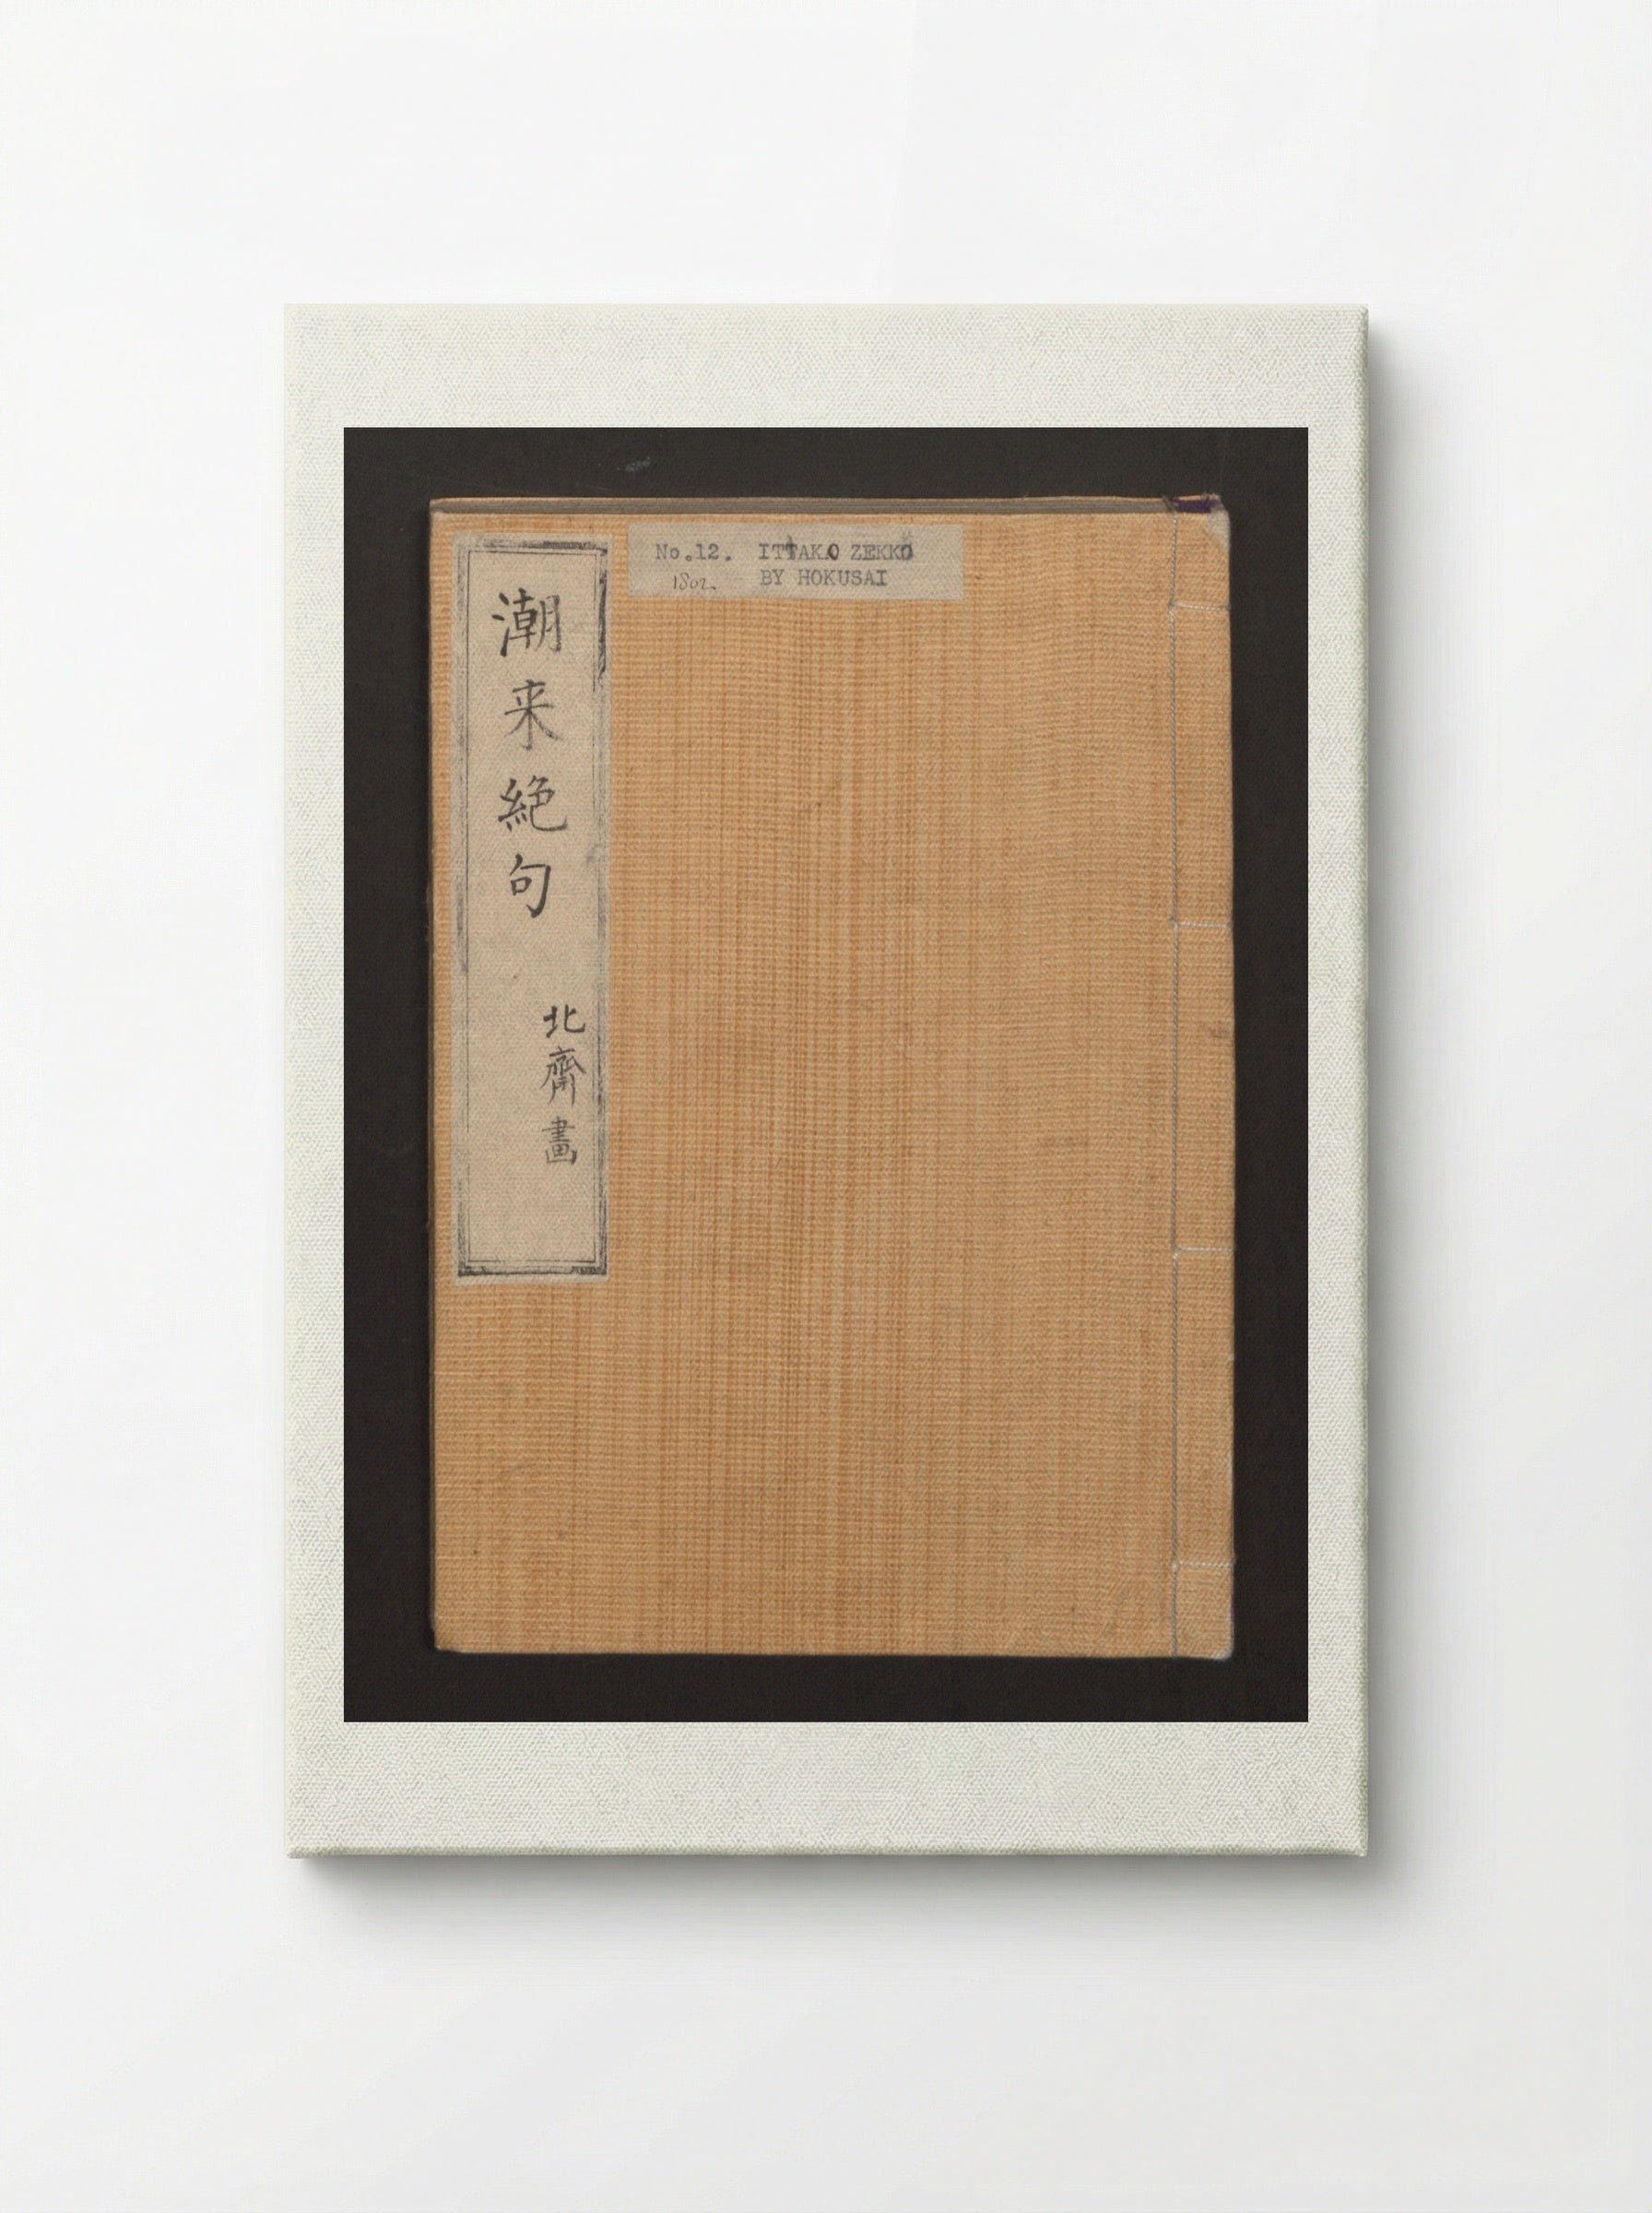 潮来絶句
北齋畫
No.12. ITTAKO ZEKKU
1802 BY HOKUSAI